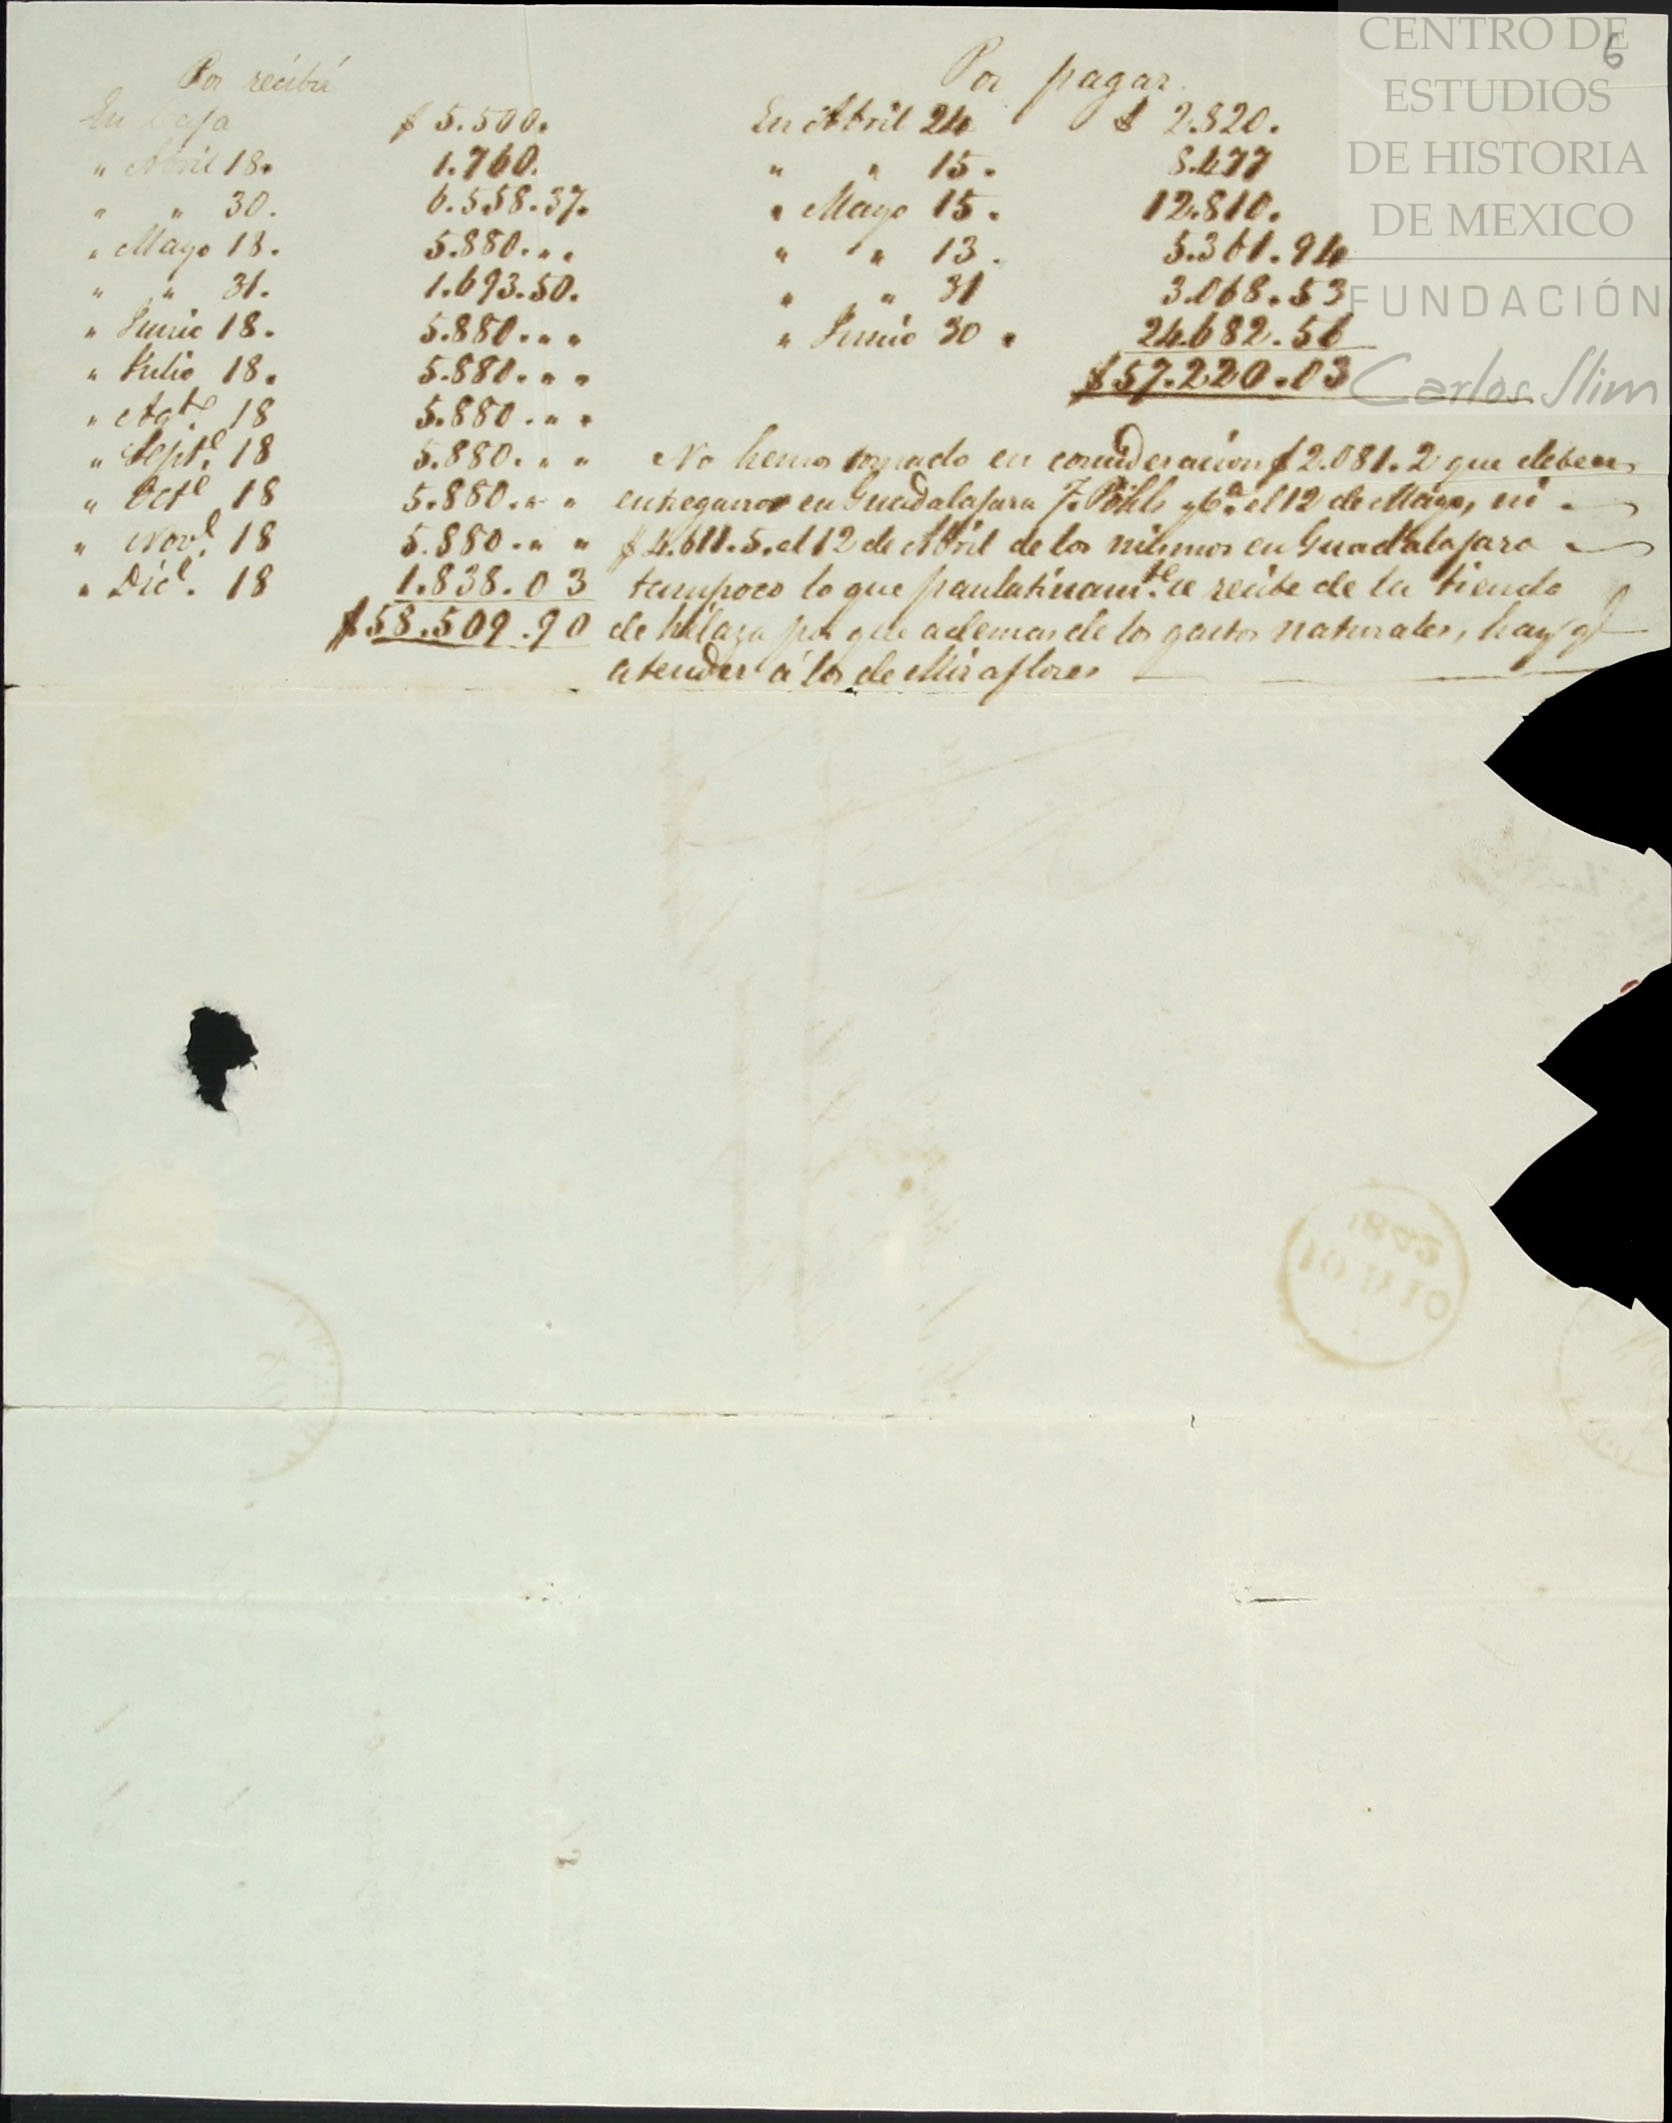 Por recibir
En caja $ 5.500.
" Abril 18. 1.760.
" " 30. 6.558.37.
" Mayo 18. 5.880. " "
" " 31. 1.693.50.
" Junio 18. 5.880. " "
" Julio 18. 5.880. " "
" Agto. 18 5.880. " "
" Septe. 18 5.880. " "
" Octe 18 5.880. " "
" Nove. 18 5.880. " "
" Dice. 18 1.838.03
$ 58.509.90
Por pagar.
En Abril 24 $ 2.820.
" " 15. 8.477
" Mayo 15. 12.810.
" " 13. 5.361.94
" " 31 3.068.53
" Junio 30. 24.682.56
$ 57.220.03
No hemos tomado en consideracion $ 2.081.2 que deben
entregarnos en Guadalajara J. Pöhls y Ca. el 12 de Mayo, ni
$ 4.611.5. el 12 de Abril de los mismos en Guadalajara
tampoco lo que paulatinamte. se recibe de la tienda
de hilaza por que ademas de los gastos naturales, hay qe
atender á los de Miraflores
6
CENTRO DE
ESTUDIOS
DE HISTORIA
DE MEXICO
FUNDACIÓN
Carlos Slim
1842